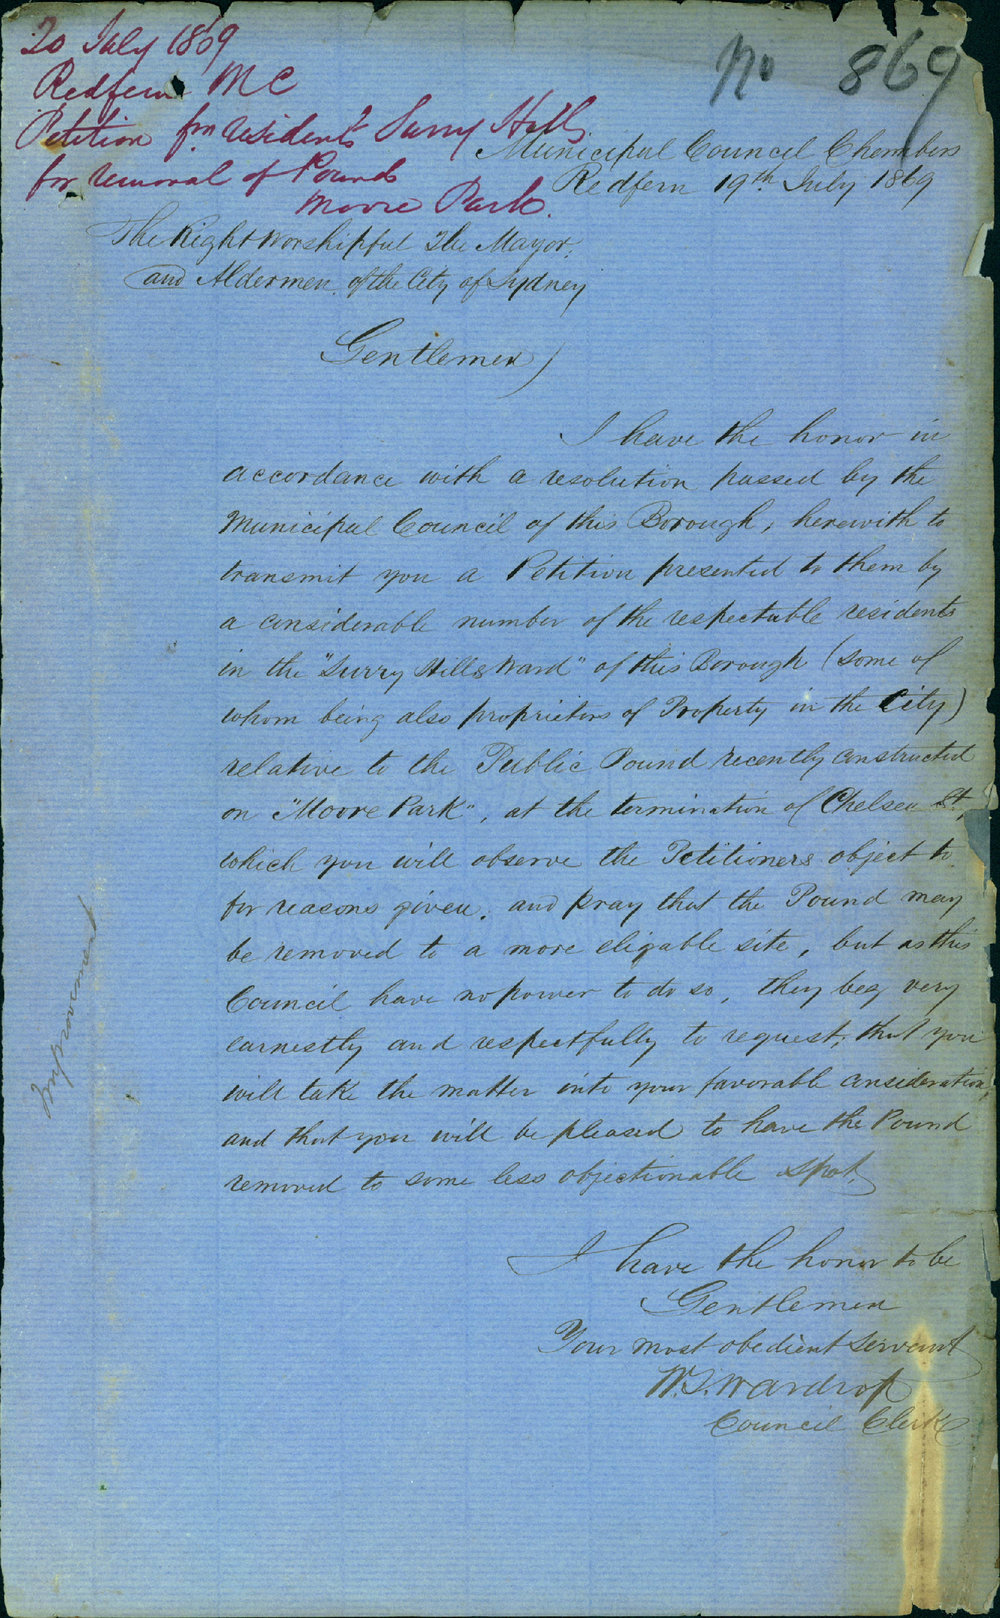 20 July 1869
Redfern M C
Petition fm residents Surry Hills
for removal of Pound
Moore Park.
No 869
Municipal Council Chambers
Redfern 19th July 1869
The Right Worshipful The Mayor,
and Aldermen of the City of Sydney
Gentlemen,
I have the honor in
accordance with a resolution passed by the
Municipal Council of this Borough, herewith to
transmit you a Petition presented to them by
a considerable number of the respectable residents
in the "Surry Hills Ward" of this Borough (some of
whom being also proprietors of Property in the City)
relative to the Public Pound recently constructed
on "Moore Park", at the termination of Chelsea St,
which you will observe the Petitioners object to
for reasons given, and pray that the Pound may
be removed to a more eligable site, but as this
Council have no power to do so, they beg very
earnestly and respectfully to request, that you
will take the matter into your favorable consideration,
and that you will be pleased to have the Pound
removed to some less objectionable spot.
I have the honor to be
Gentlemen
Your most obedient servant
W.S. Wardrop
Council Clerk
Improvement